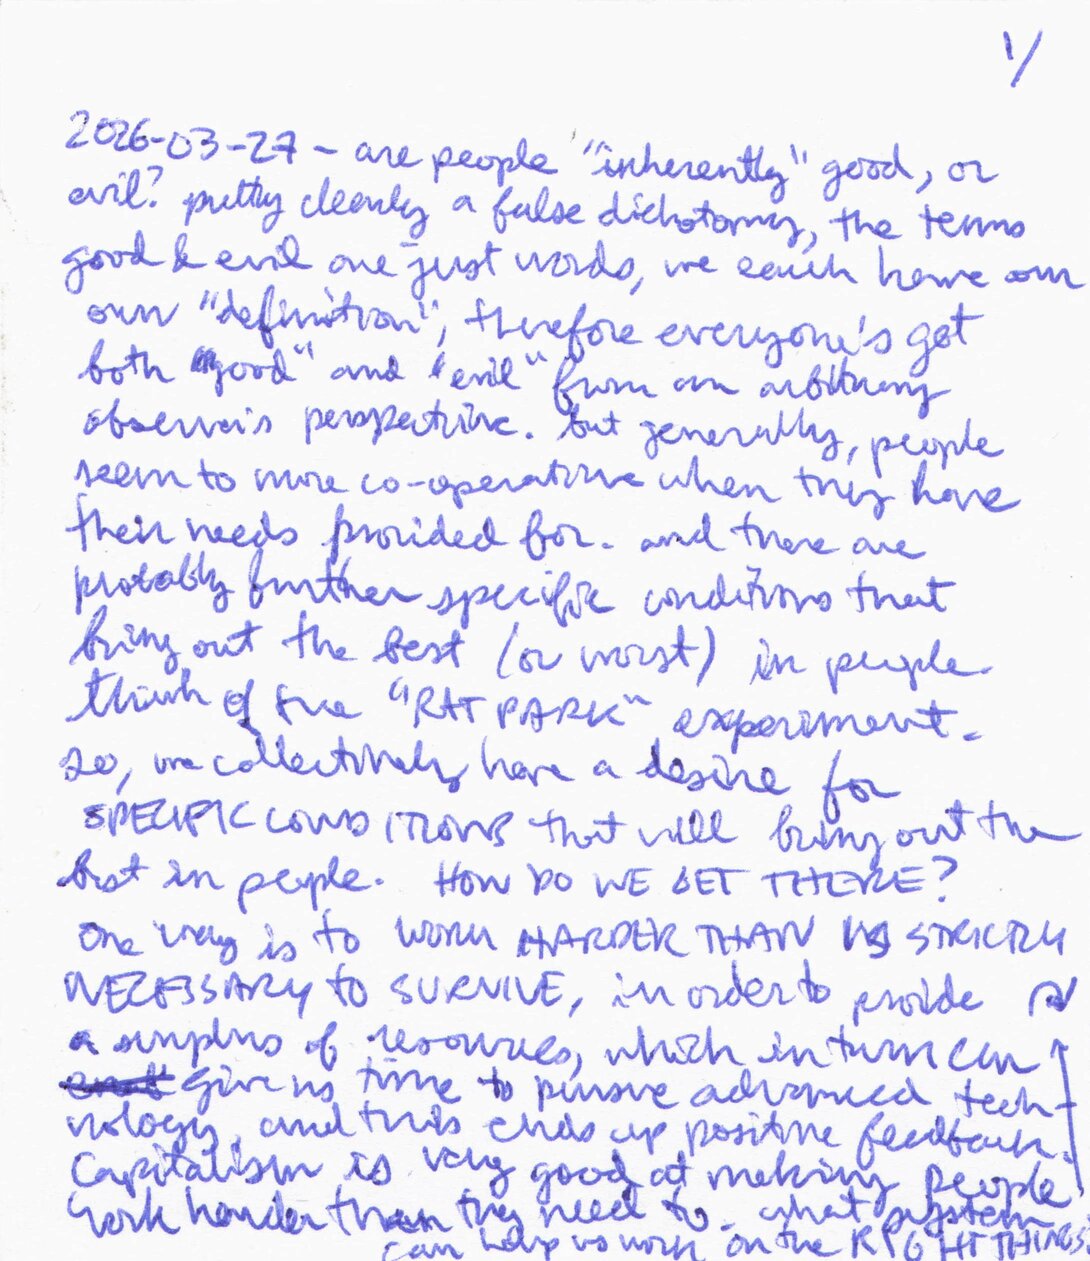 1/
2026-03-27 - are people "inherently" good, or
evil? pretty clearly a false dichotomy, the terms
good & evil are just words, we each have our
own "definition", therefore everyone's got
both "good" and "evil" from an arbitrary
observer's perspective. but generally, people
seem to more co-operative when they have
their needs provided for. and there are
probably further specific conditions that
bring out the best (or worst) in people.
think of the "RAT PARK" experiment.
so, we collectively have a desire for
SPECIFIC CONDITIONS that will bring out the
best in people. HOW DO WE GET THERE?
One way is to WORK HARDER THAN IS STRICTLY
NECESSARY to SURVIVE, in order to provide
a surplus of resources, which in turn can
give us time to pursue advanced tech-
nology, and this ends up positive feedback.
Capitalism is very good at making people
work harder than they need to. what system
can help us work on the RIGHT THINGS